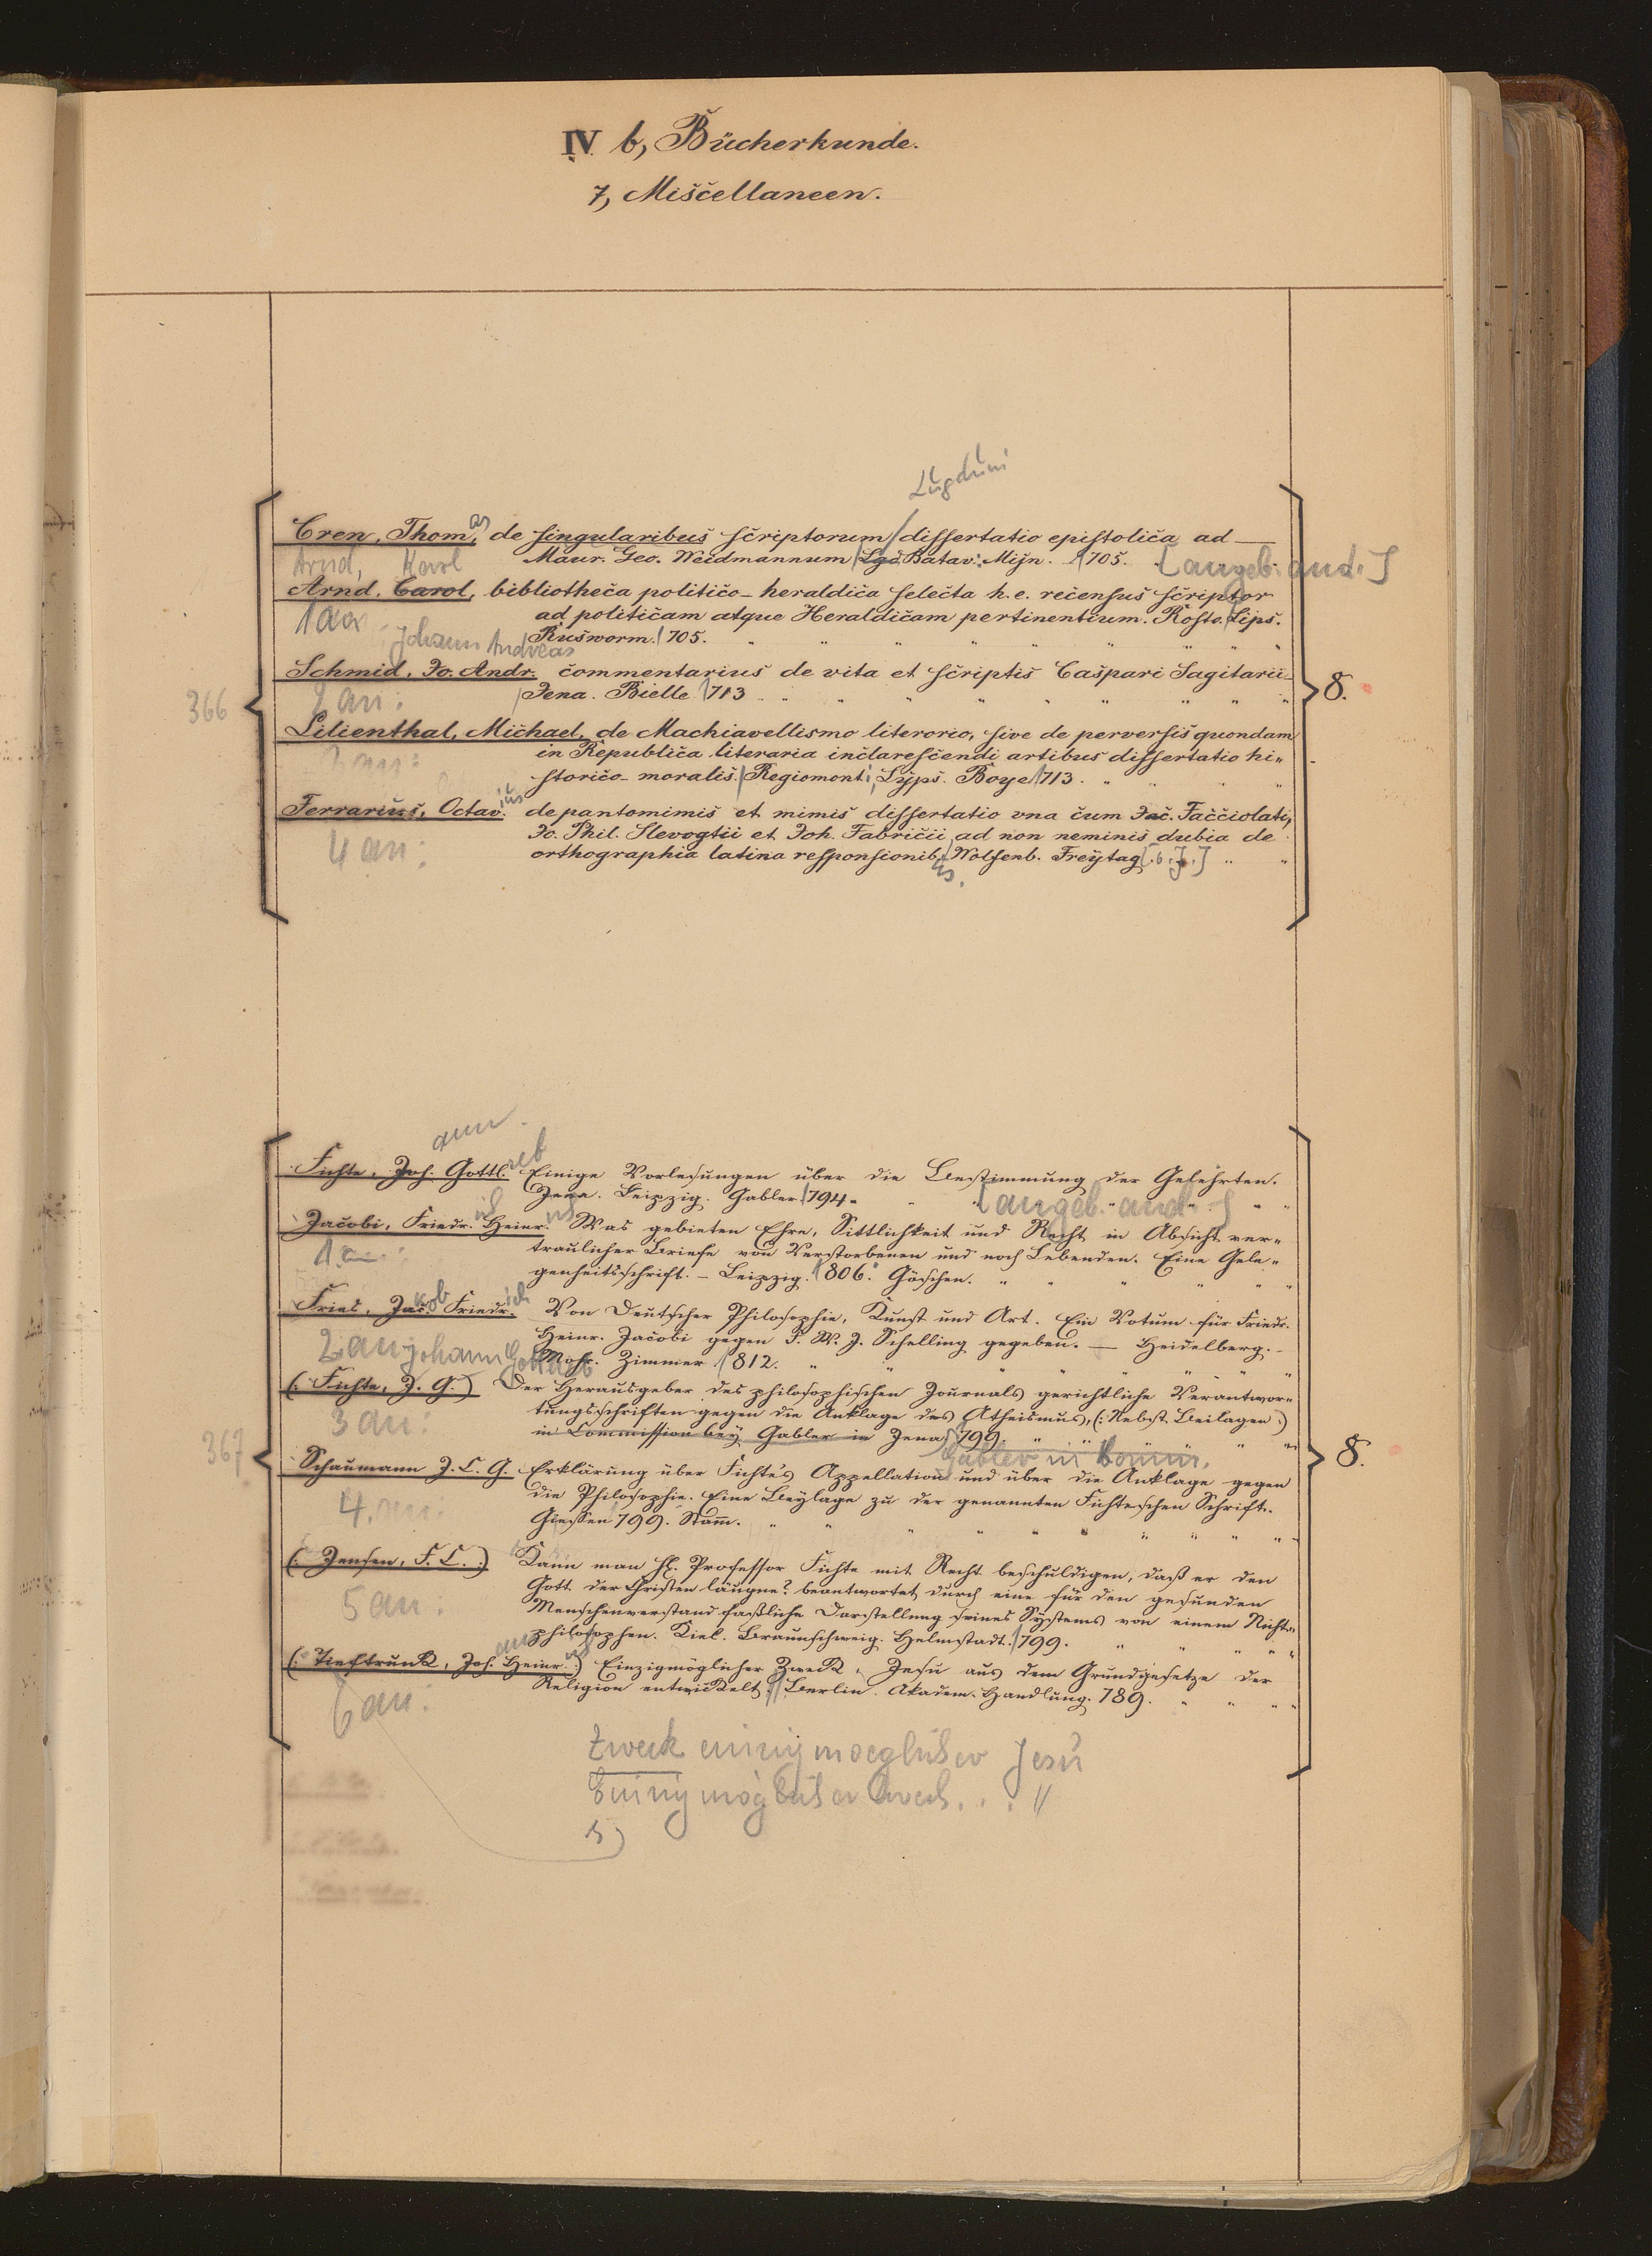 IV. b, Bücherkunde.
7, Miscellaneen.
Lugduni
Cren, Thomas, de singularibus scriptorum / dissertatio epistolica ad —
Maur. Geo. Weidmannum / Lgd Batav: Mijn. 1705. [angeb: and.]
Arnd, Karl
Arnd, Carol, bibliotheca politico-heraldica selecta h. e. recensus scriptor
ad politicam atque Heraldicam pertinentium. Rosto. Lips.
1 an
Rusworm. 1705. " " " " " "
Johann Andreas
Schmid, Jo. Andr. commentarius de vita et scriptis Caspari Sagitarii
366 2 an: Jena. Bielke 1713 " " " " " " 8.
Lilienthal, Michael, de Machiavellismo literorio, sive de perversis quondam
3 an: in Republica literaria inclarescendi artibus dissertatio hi=
storico-moralis. / Regiomont; Lyps. Boye 1713. " " "
Ferrarius, Octavius de pantomimis et mimis dissertatio vna cum Jac. Facciolati,
Jo. Phil. Slevogtii et Joh. Fabricii ad non neminis dubia de
4 an: orthographia latina responsionibus, / Wolfenb. Freytag [s. J.] " "
ann
Fichte, Joh. Gottlieb Einige Vorlesungen über die Bestimmung der Gelehrten.
Jena. Leipzig. Gabler 1794. [angeb. and.] " "
Jacobi, Friedrich Heinrich Was gebieten Ehre, Sittlichkeit und Recht in Absicht ver=
1 an: traulicher Briefe von Verstorbenen und noch Lebenden. Eine Gele=
genheitsschrift. – Leipzig. 1806. Göschen. " " " " "
Fries, Jakob Friedrich Von Deutscher Philosophie, Kunst und Art. Ein Votum für Friedr.
Heinr. Jacobi gegen F. W. J. Schelling gegeben. — Heidelberg. –
2 an Johann Gottlieb Mohr. Zimmer 1812. " " " " "
(: Fichte, J. G. :) Der Herausgeber des philosophischen Journals gerichtliche Verantwor=
3 an: tungsschriften gegen die Anklage des Atheismus, (: Nebst Beilagen :)
in Commission bey Gabler in Jena 1799. " " " " "
367 Gabler in Komm. 8.
Schaumann J. C. G. Erklärung über Fichte's Appellation und über die Anklage gegen
4. an: die Philosophie. Eine Beylage zu der genannten Fichteschen Schrift.
Giessen 799. Stam̄. " " " " " " "
(: Jensen, F. C. :) Kann man H. Professor Fichte mit Recht beschuldigen, daß er den
5 an: Gott der Christen läugne? beantwortet durch eine für den gesunden
Menschenverstand faßliche Darstellung seines Systems von einem Nicht=
philosophen. Kiel. Braunschweig. Helmstadt. 1799. " " " "
(: Tieftrunk, Johann Heinrich :) Einzigmöglicher Zweck Jesu aus dem Grundgesetze der
6 an: Religion entwickelt. // Berlin. Akadem. Handlung. 789. " " " "
Zweck einzigmoeglicher Jesu
Einzigmöglicher Zweck . . . "